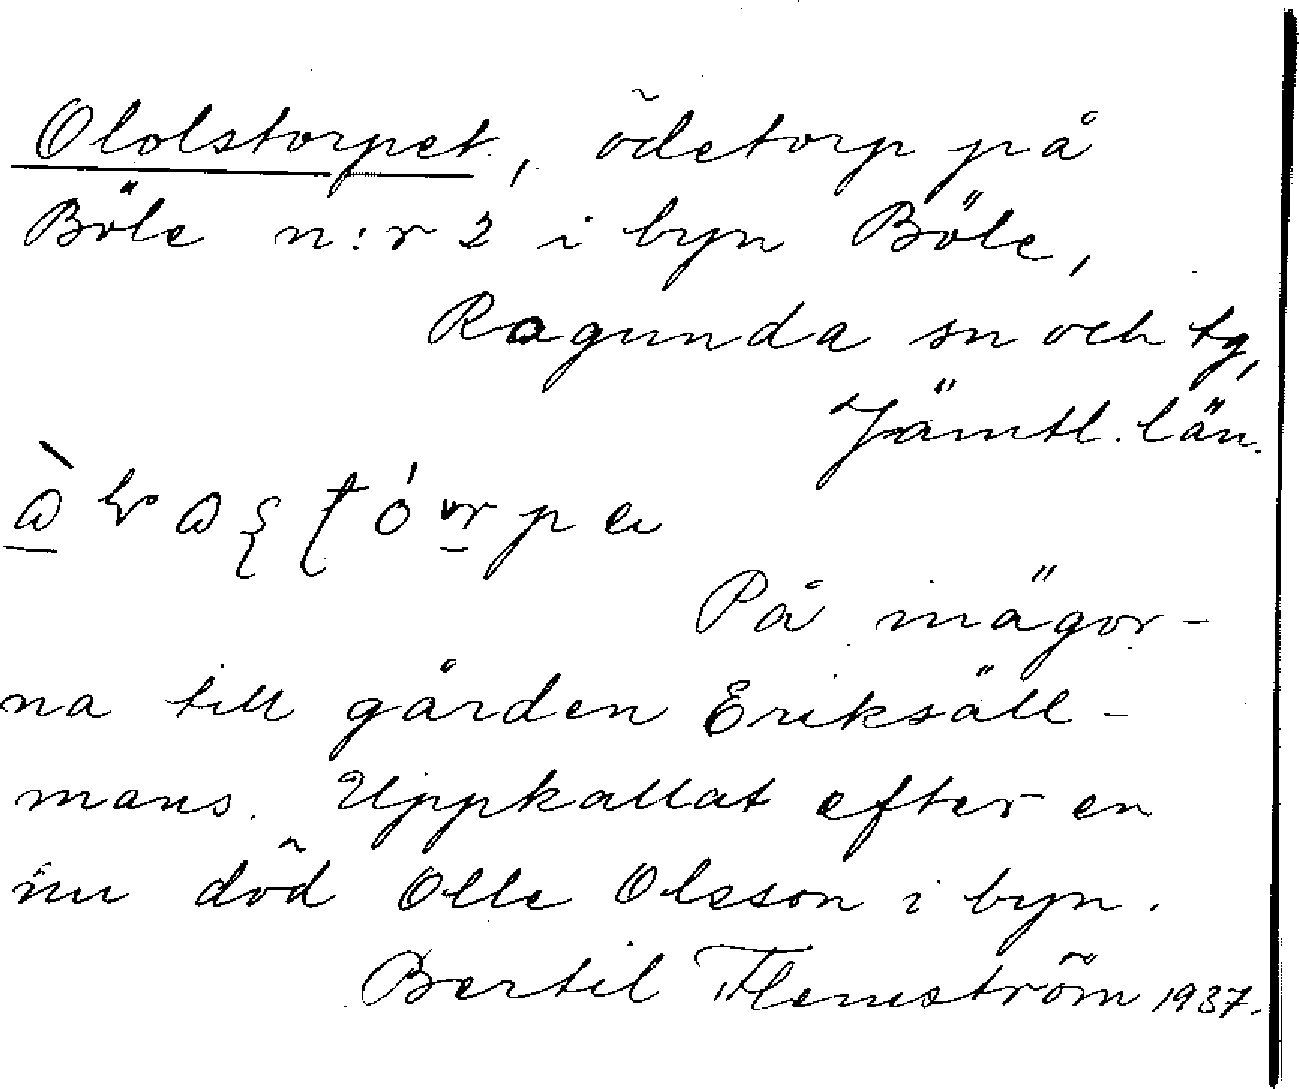 Ololstorpet, ödetorp på
Böle n:r 2 i byn Böle,
Ragunda sn och tg,
Jämtl. län.
På inägor-
na till gården Eriksäll-
mans. Uppkallat efter en
nu död Olle Olsson i byn.
Bertil Flemström 1937.